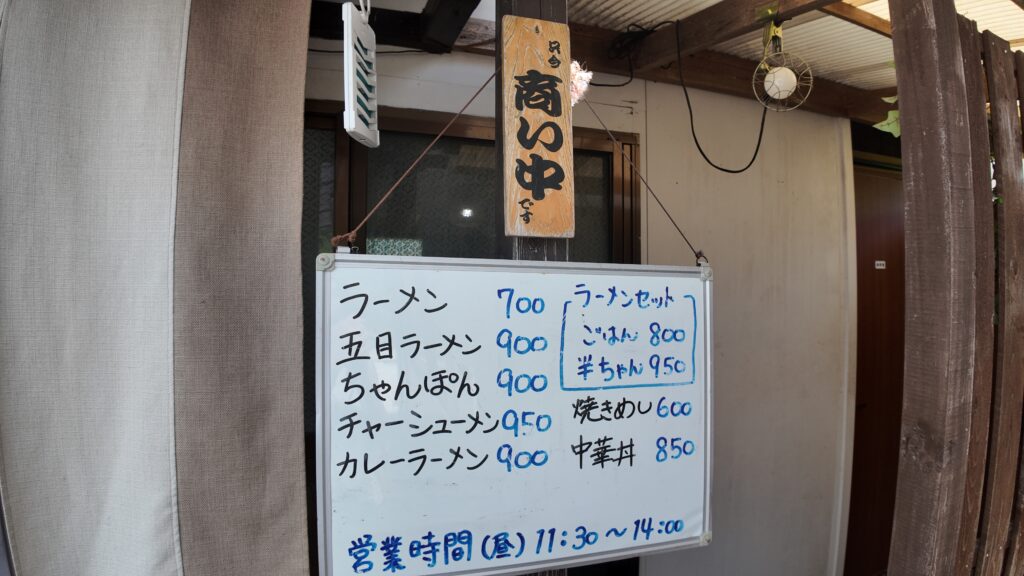 只今
商い中
です
ラーメン 700
五目ラーメン 900
ちゃんぽん 900
チャーシューメン 950
カレーラーメン 900
ラーメンセット
ごはん 800
半ちゃん 950
焼きめし 600
中華丼 850
営業時間(昼) 11:30～14:00